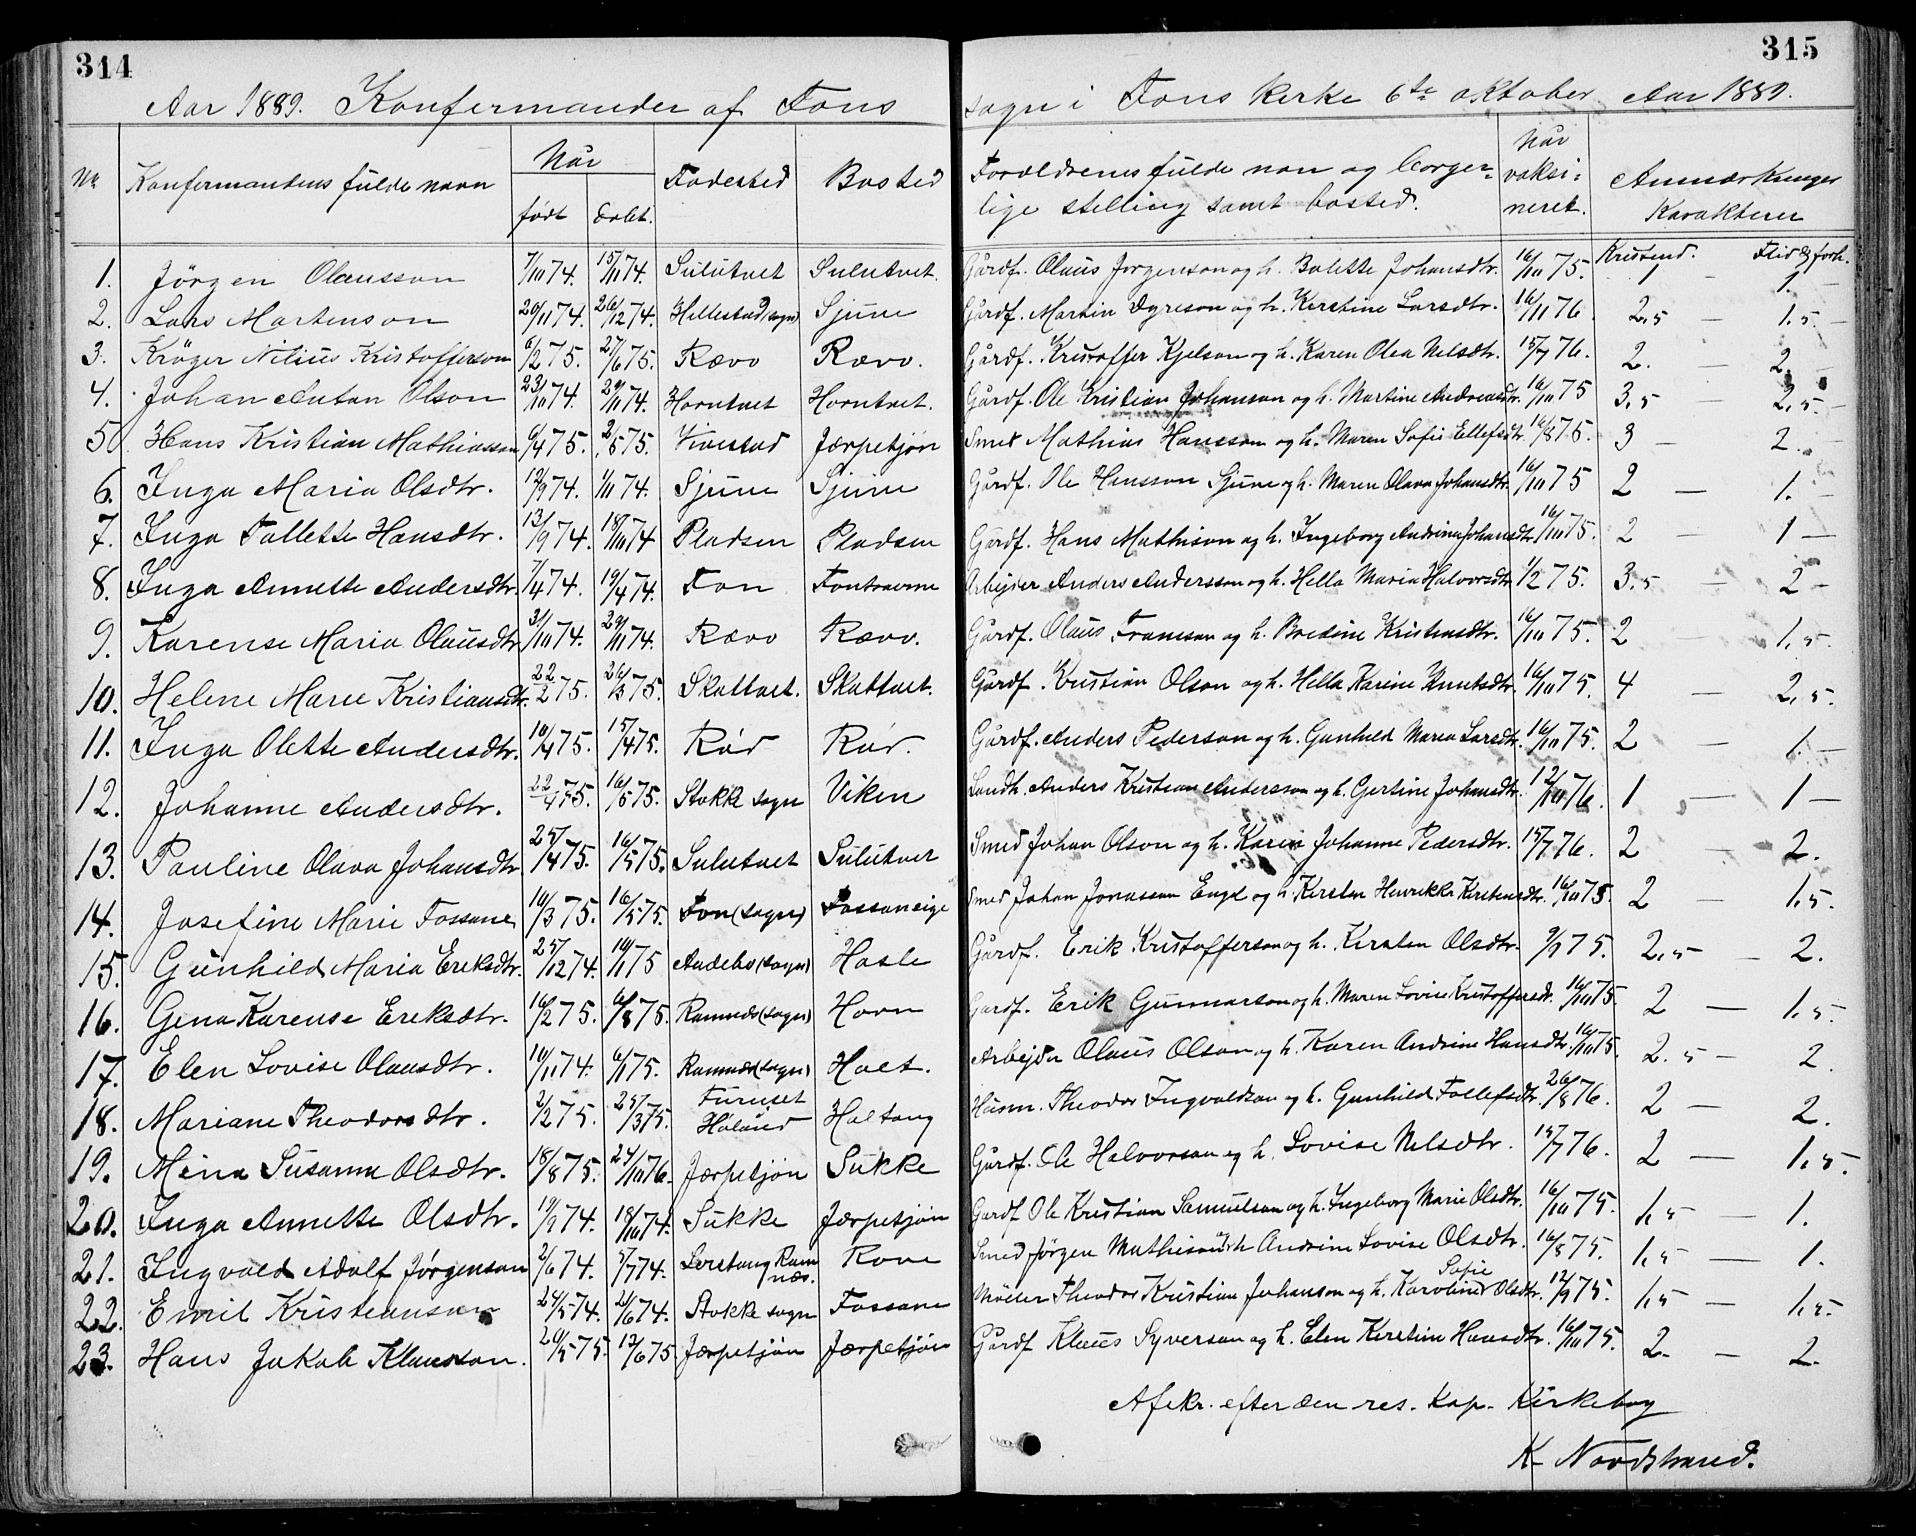 314
315
Aar 1889. Konfermander af Fons
sogn i Fons Kirke 6te oktober Aar 1889.
Nr Konfermandens fulde navn Når født Døbt. Fødested Bosted
Foreldrenes fulde navn og borger=lige stilling samt bosted. Når vaksi=neret. Anmærkninger Karakterer
Kristend. Flid & forh.
1. Jörgen Olausson 7/10 74. 15/11 74. Sulutvet Sulutvet. Gårdf. Olaus Jorgenson og h. Bolette Johansdtr. 16/10 75. 1 — 1. —
2. Lars Martenson 20/11 74. 26/12 74. Hillestad (sogn) Sjüue Gårdf. Martin Syreson og h. Kerstine Larsdtr. 16/11 76 2,5 — 1,5. —
3. Kröger Nilius Kristofferson 6/2 75. 27/6 75. Rævo Rævo. Gårdf. Kristoffer Kjelson og h. Karen Olea Nelsdtr. 15/7 76. 2. — 2. —
4. Johan Anton Olson 23/10 74. 29/11 74. Horntvet Horntvet. Gårdf. Ole Kristian Johanson og h. Martine Andreasdtr. 16/10 75 3,5 — 2,5. —
5. Hans Kristian Mathiasson 6/4 75. 2/5 75. Vivestad Jærpetjön Smed Mathias Hansson og h. Maren Sofie Ellefsdtr. 16/8 75. 3 — 2. —
6. Inga Maria Olsdtr. 12/9 74. 1/11 74. Sjüue Sjüue Gårdf. Ole Hansson Sjüue og h. Maren Olava Johansdtr. 16/10 75 2 — 1. —
7. Inga Tallette Hansdtr. 13/9 74. 18/10 74 Pladsen Pladsen Gårdf. Hans Mathison og h. Ingeborg Andrine Johansdtr. 16/10 75. 2 — 1 —
8. Inga Annette Andersdtr. 7/4 74. 19/4 74. Fon Fontraerne Arbejder Anders Andersson og h. Hella Maria Halvorsdtr. 1/2 75. 3,5 — 2 —
9. Karense Maria Olausdtr 31/10 74. 29/11 74. Rævo Rævo. Gårdf. Olaus Franson og h. Bredine Kristensdtr. 16/10 75. 2 1,5.
10. Helene Marie Kristiansdtr. 22/2 75. 26/3 75. Skattvet. Skattvet. Gårdf. Kristian Olson og h. Hella Karine Knutsdtr. 16/10 75. 4 — 2,5.
11. Inga Olette Andersdtr. 10/4 75. 15/4 75. Rår Rår. Gårdf. Anders Pederson og h. Gunhild Maria Larsdtr. 16/10 75. 2 — 1. —
12. Johanne Andersdtr. 22/4 75. 16/5 75. Stokke sogn Viken Landh. Anders Kristian Andersson og h. Gertine Johansdtr. 12/10 76. 1 — 1 —
13. Pauline Olava Johansdtr 25/4 75. 16/5 75. Sulutvet Sulutvet Smed Johan Olson og h. Karen Johanne Pedersdtr. 15/7 76. 2 — 2.
14. Josefine Marie Fossane 10/3 75. 16/5 75. Fon (sogn) Fossaneige Smed Johan Jonassen Engl og h Kersten Henrikke Kerstensdtr. 16/10 75. 2 — 1,5.
15. Gunhild Maria Eriksdtr. 25/12 74. 10/1 75 Andebo (sogn) Hasle Gårdf. Erik Kristofferson og h. Kersten Olsdtr. 9/9 75. 2,5 — 2.
16. Gena Karense Ereksdtr. 16/2 75. 6/8 75. Ramnes (sogn) Horn Gardf. Erik Gunnarson og h. Maren Lovise Kristoffersdtr. 16/10 75. 2 — 1,5.
17. Elen Lovise Olausdtr. 10/11 74. 6/1 75. Ramnæs (sogn) Holt. Arbejder Olaus Olson og h. Karen Andrine Hansdtr. 16/10 75. 2.5 — 2.
18. Mariane Theodorsdtr. 2/2 75. 25/3 75. Furuset Höland Holtang Husm. Theodor Ingvaldson og h. Gunhild Tollefsdtr. 26/8 76. 2 — 2.
19. Mina Susanna Olsdtr. 18/8 75. 24/10 76. Jærpetjön Sukke Gårdf. Ole Halvorson og h. Lovise Nelsdtr. 15/7 76. 2 — 1,5.
20. Inga Annette Olsdtr. 19/9 74. 18/10 74. Sukke Jærpetjön Gardf Ole Kristian Samuelson og h. Ingeborg Marie Olsdtr. 16/10 75. 1,5 — 1.
21. Ingvald Adolf Jørgenson 2/6 74. 5/7 74. Lerstang Ramnæs. Rove Smed Jørgen Mathison og h Andrine Lovise Olsdtr. 16/8 75. 1,5 — 1.
22. Emil Kristianson 24/5 74. 21/6 74. Stokke sogn Fossane Möller Theodor Kristian Johanson og h. Karoline Sofie Olsdtr. 12/9 75. 1,5 — 1,5.
23. Hans Jakob Klausson. 20/5 75. 13/6 75. Jærpetjön Jærpetjön Gårdf Klaus Syverson og h. Elen Kerstine Hansdtr. 16/10 75. 2. — 2.
Afskr. efter den res. Kap. Kirkebog
K. Nordstrand.